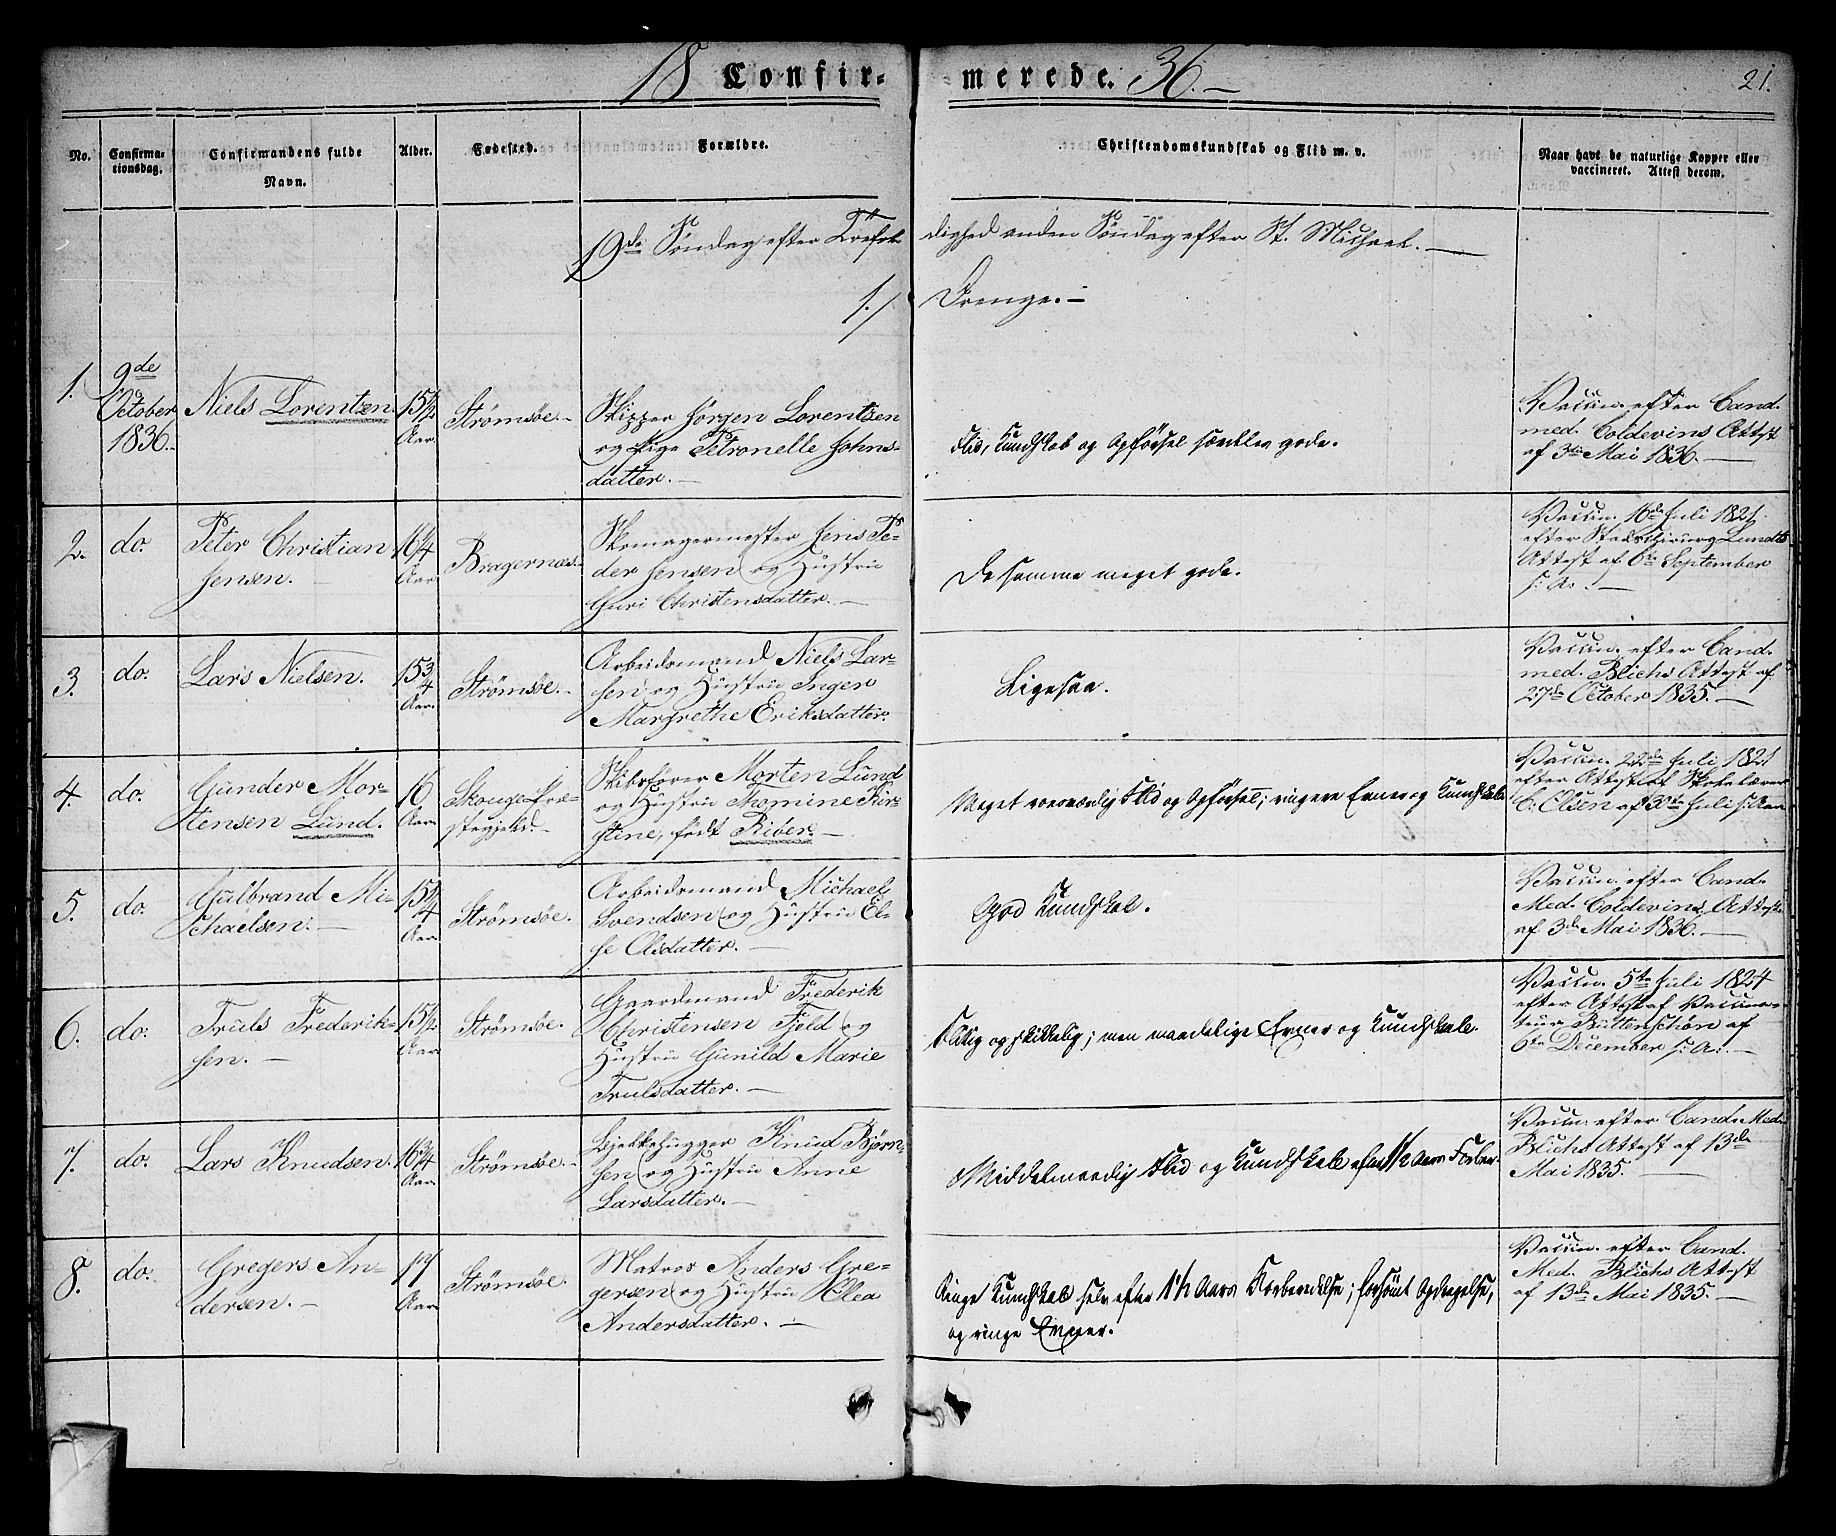 18 Confir-
merede. 36.
21.
No.
Confirma-
tionsdag.
Confirmandens fulde
Navn.
Alder.
Fødested.
Forældre.
Christendomskundskab og Flid m. v.
Naar havt de naturlige Kopper eller
vaccineret. Attest derom.
19de Søndag efter Trefol-
dighed anden Søndag efter St. Michael.
1./
Drenge.
1.
9de
October
1836.
Niels Lorentzen.
15½
Aar.
Strømsøe.
Skipper Jørgen Lorentzen
og Pige Petronelle Johns-
datter.
Flid, Kundskab og Opførsel samtlig gode.
Vaccin. efter Cand.
med. Coldevins Attest
af 3de Mai 1836.
2.
do.
Peter Christian
Jensen.
16¼
Aar
Bragernæs.
Skomagermester Jens Pe-
der Jensen og Hustrue
Guri Christensdatter.
De samme meget gode.
Vaccin. 16de Juli 1821.
efter Stadschirurg Lundts
Attest af 6te September
s: A:.
3.
do.
Lars Nielsen.
15¾
Aar.
Strømsøe.
Arbeidsmand Niels Lar-
sen og Hustrue Inger
Margrethe Eriksdatter.
Ligesaa.
Vaccin. efter Cand.
med. Blichs Attest af
27de October 1835.
4.
do.
Gunder Mor-
tensen Lund.
16
Aar.
Skouge Præ-
stegjeld.
Skibsfører Morten Lund
og Hustrue Thomine Kir-
stine, født Riber.
Meget roesværdig Flid og Opførsel; ringere Evner og Kundskab.
Vaccin. 22de Juli 1821
efter Attest af Skolelærer
C. Olsen af 3die Juli s: Aar
5.
do.
Gulbrand Mi-
chaelsen.
15¼
Aar.
Strømsøe.
Arbeidsmand Michael
Svendsen og Hustrue El-
se Olsdatter.
God Kundskab.
Vaccin. efter Cand.
Med. Coldevins Attest
af 3de Mai 1836.
6.
do.
Truls Frederik-
sen.
15½
Aar.
Strømsøe.
Gaardmand Frederik
Christensen Fjeld og
Hustrue Gunild Marie
Trulsdatter.
Flittig og skikkelig; men maadelige Evner og Kundskab.
Vaccin. 5te Juli 1824
efter Attest af Vaccina-
teur Buttenschøn af
6te December s: A:.
7.
do.
Lars Knudsen.
16¾
Aar.
Strømsøe.
Bjelkehugger Knud Bjørn-
sen og Hustrue Anne
Larsdatter.
Middelmaadig Flid og Kundskab efter 1½ Aars Forber.
Vaccin. efter Cand. Med.
Blichs Attest af 13de
Mai 1835.
8.
do.
Gregers An-
dersen.
17
Aar
Strømsøe.
Matros Anders Gre-
gersen og Hustrue Olea
Andersdatter.
Ringe Kundskab selv efter 1½ Aars Forberedelse; forsømt Opdragelse,
og ringe Evner.
Vaccin. efter Cand.
Med. Blichs Attest
af 13de Mai 1835.